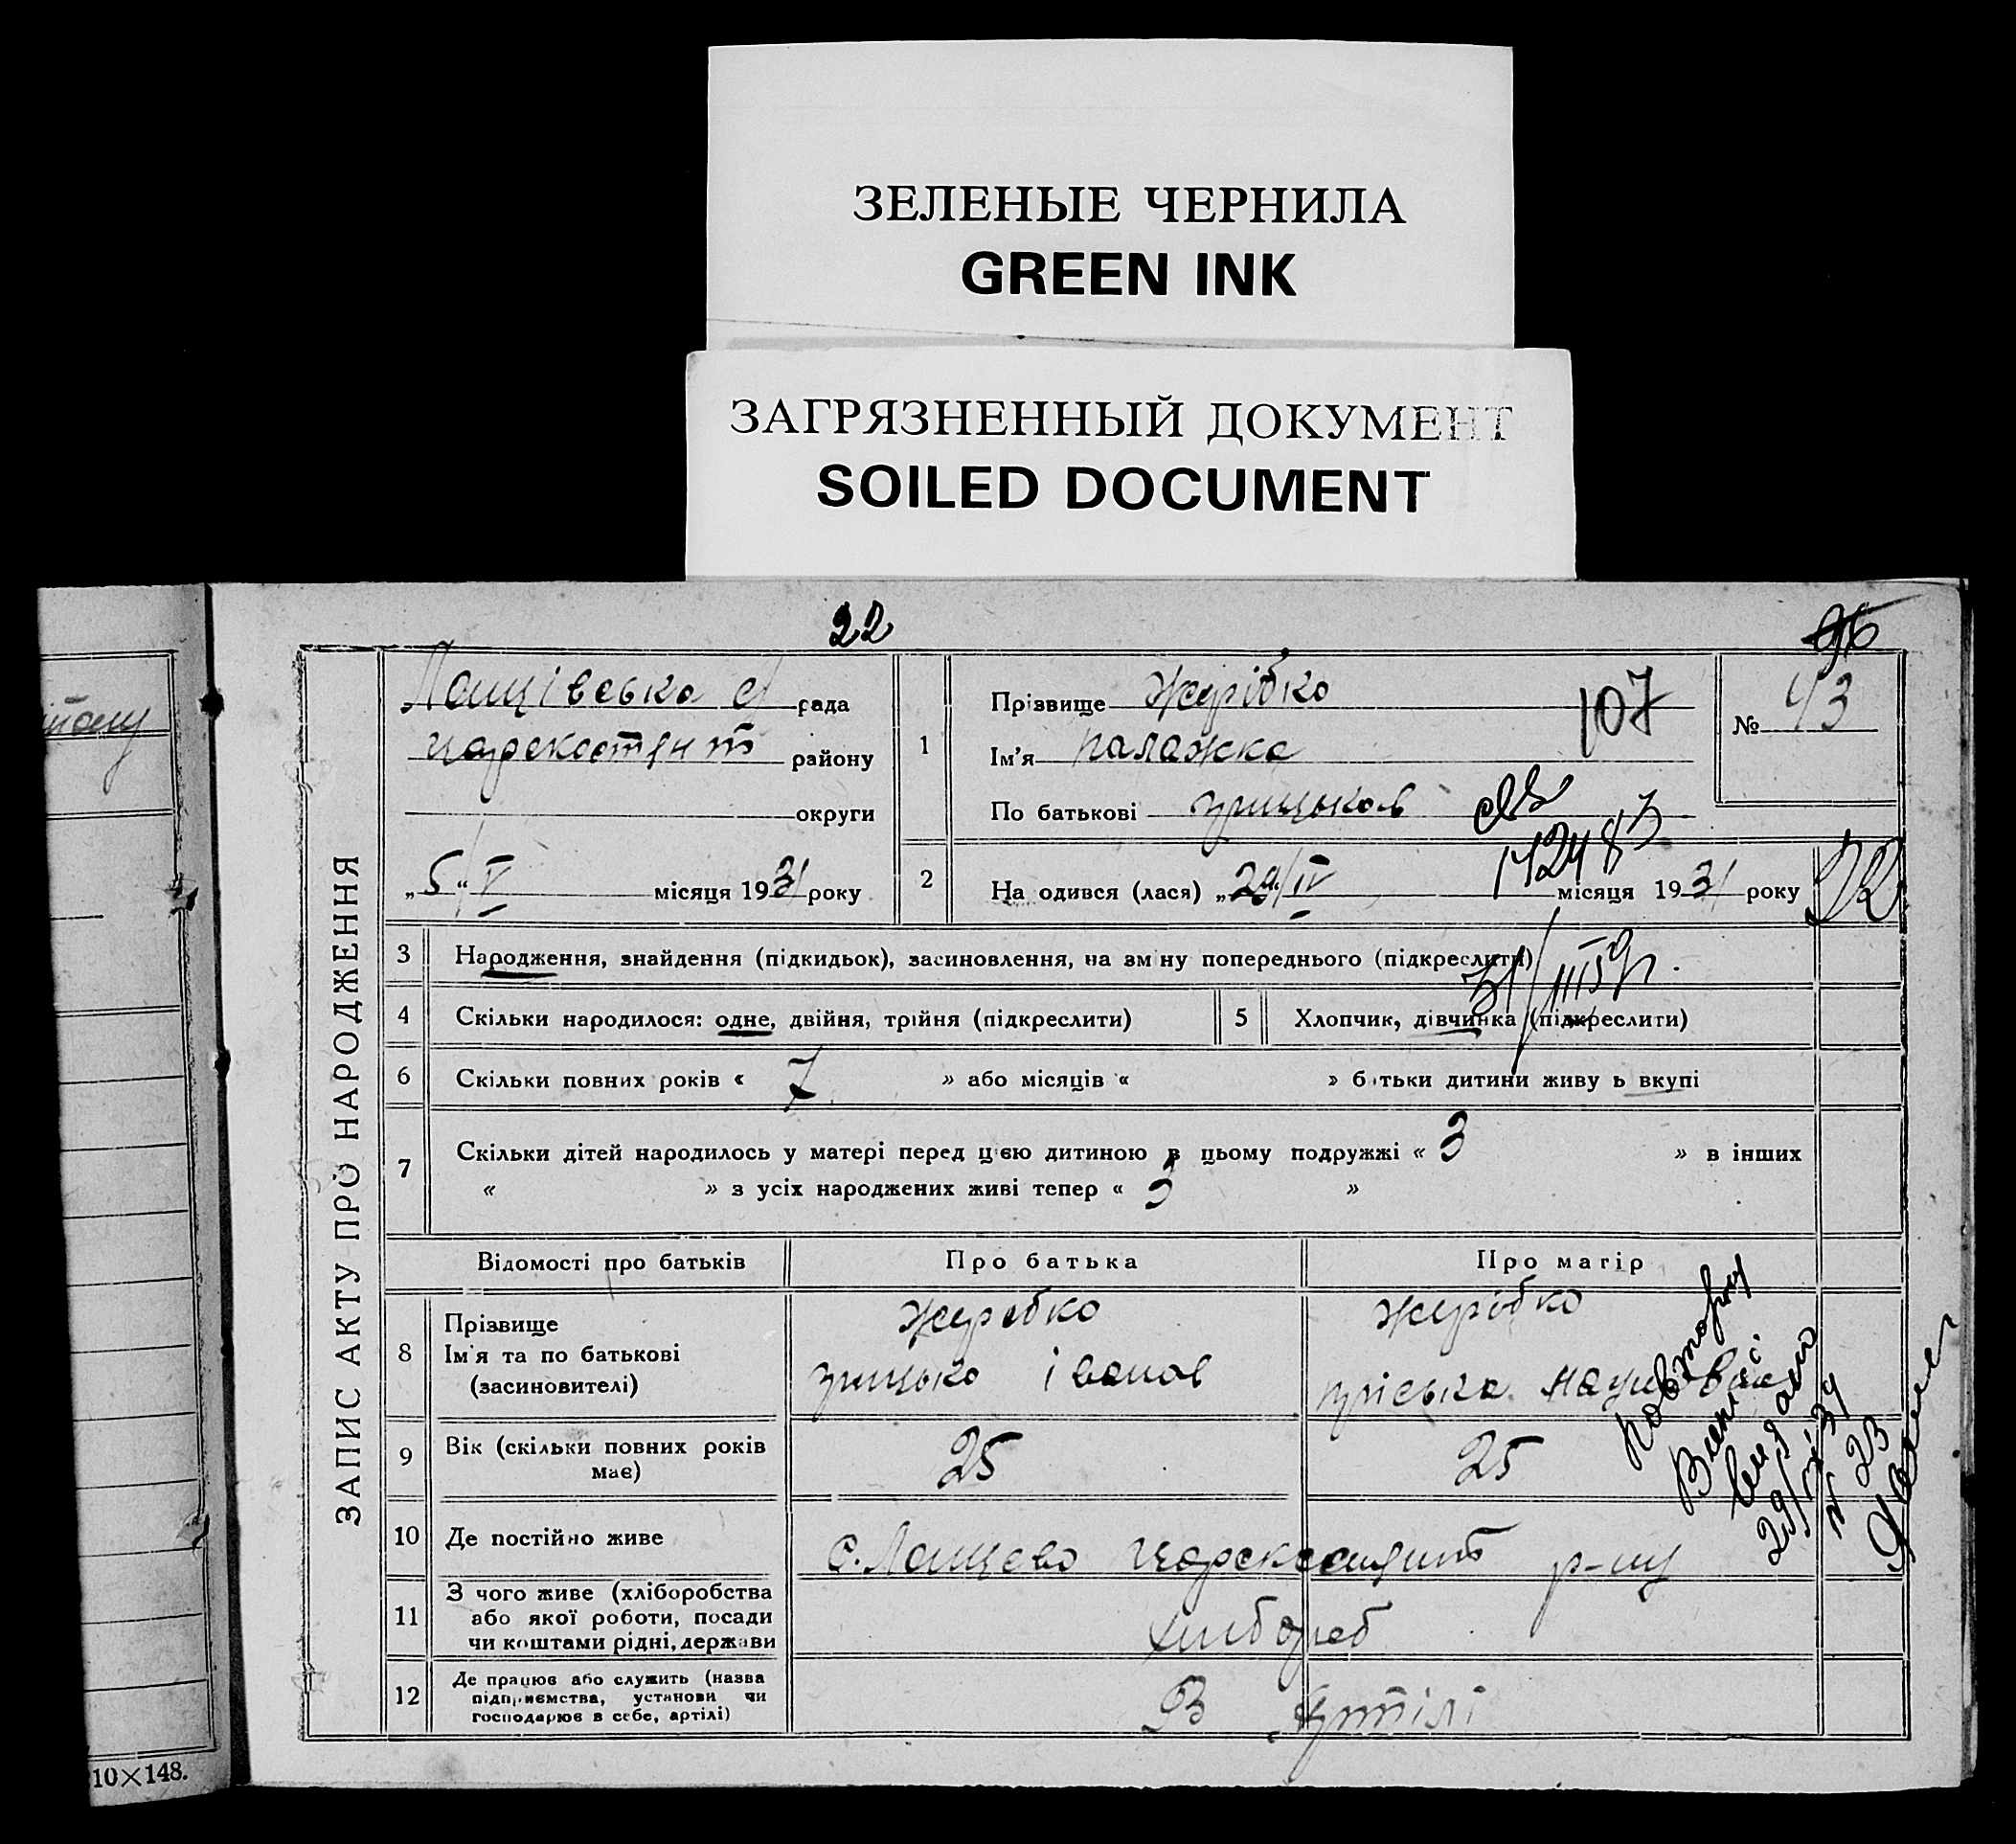 ЗЕЛЕНЫЕ ЧЕРНИЛА
GREEN INK
ЗАГРЯЗНЕННЫЙ ДОКУМЕНТ
SOILED DOCUMENT
22
96
ЗАПИС АКТУ ПРО НАРОДЖЕННЯ
Лащівська с/ рада
району
округи
„5“/V місяця 1931 року
1
Прізвище Журібко
Ім'я палажка
По батькові грицьков
107
№ 43
2
На одився (лася) „29/IV місяця 1931 року
3 Народження, знайдення (підкидьок), засиновлення, на зміну попереднього (підкреслити)
4 Скільки народилося: одне, двійня, трійня (підкреслити) 5 Хлопчик, дівчинка (підкреслити)
6 Скільки повних років « 7 » або місяців « » батьки дитини живу ь вкупі
7 Скільки дітей народилось у матері перед цією дитиною в цьому подружжі « 3 » в інших
« » з усіх народжених живі тепер « 3 »
Відомості про батьків Про батька Про матір
8 Прізвище
Ім'я та по батькові
(засиновителі)
Журебко
грицько іванов
Журібко
пріська наумовна
9 Вік (скільки повних років має) 25 25
10 Де постійно живе с. Лащево р-ну
11 З чого живе (хліборобства
або якої роботи, посади
чи коштами рідні, держави
хлибороб
12 Де працює або служить (назва
підприємства, установи чи
господарює в себе, артілі)
В Артілі
29/VI 34
№ 23
10×148.